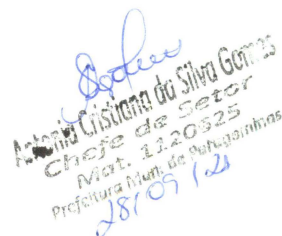 Antonia Cristiana da Silva Gomes
Chefe de Setor
Mat. 1120625
Prefeitura Mun. de
28/09/21